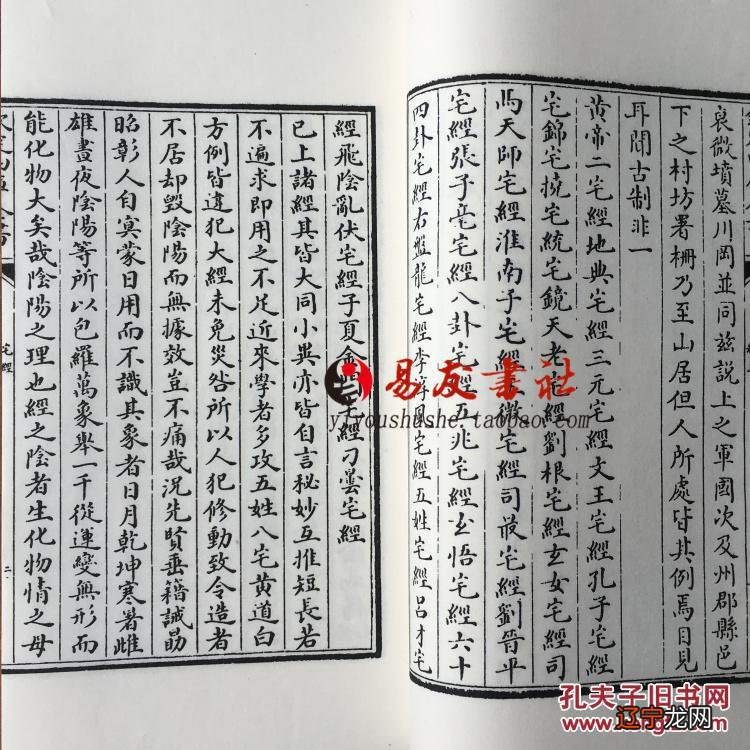 衰微墳墓川岡並同兹說上之軍國次及州郡縣邑
下之村坊署柵乃至山居但人所處皆其例焉目見
耳聞古制非一
黄帝二宅經地典宅經三元宅經文王宅經孔子宅經
宅錦宅撓宅統宅鏡天老宅經劉根宅經玄女宅經司
馬天師宅經淮南子宅經微宅經司最宅經劉晉平
宅經張子毫宅經八卦宅經五兆宅經玄悟宅經六十
四卦宅經右盤龍宅經李淳風宅經五姓宅經呂才宅
經飛陰亂伏宅經子夏金宅經刁曇宅經
已上諸經其皆大同小異亦皆自言秘妙互推短長若
不遍求即用之不足近來學者多攻五姓八宅黄道白
方例皆違犯大經未免災咎所以人犯修動致令造者
不居却毀陰陽而無據效豈不痛哉况先賢垂籍誡勗
昭彰人自冥蒙日用而不識其象者日月乾坤寒暑雌
雄晝夜陰陽等所以包羅萬象舉一千從運變無形而
能化物大矣哉陰陽之理也經之陰者生化物情之母
宅經
二
易友書社
yiyoushushe.taobao.com
孔夫子旧书网
辽宁龙网